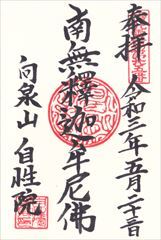 奉拝 令和二年五月二十三日
南無釋迦牟尼佛
向泉山 自性院